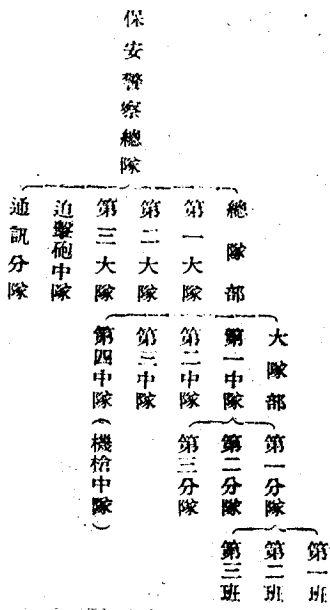 保安警察總隊
總隊部
第一大隊
第二大隊
第三大隊
迫擊砲中隊
通訊分隊
大隊部
第一中隊
第二中隊
第三中隊
第四中隊(機槍中隊)
第一分隊
第二分隊
第三分隊
第一班
第二班
第三班